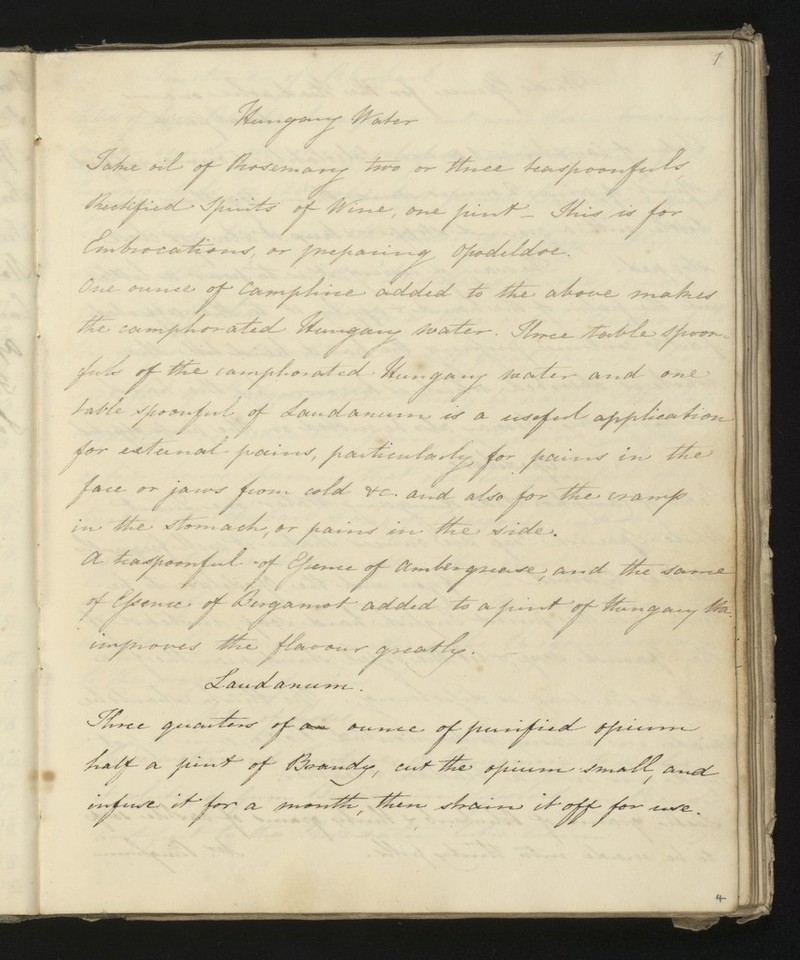 1
Hungary Water
Take oil of Rosemary two or three teaspoonfuls,
Rectified Spirits of Wine, one pint - This is for
Embrocations, or preparing Opodeldoc.
One ounce of Camphire added to the above makes
the camphorated Hungary water. Three table spoon-
fuls of the camphorated Hungary water and one
table spoonful of Laudanum is a useful application
for external pains, particularly for pains in the
face or jaws from cold &c. and also for the cramp
in the stomach, or pains in the side.
A teaspoonful of Essence of Ambergrease, and the same
of Essence of Bergamot added to a pint of Hungary Wa.
improves the flavour greatly.
Laudanum.
Three quarters of an ounce of purified opium
half a pint of Brandy, cut the opium small, and
infuse it for a month, then strain it off for use.
4